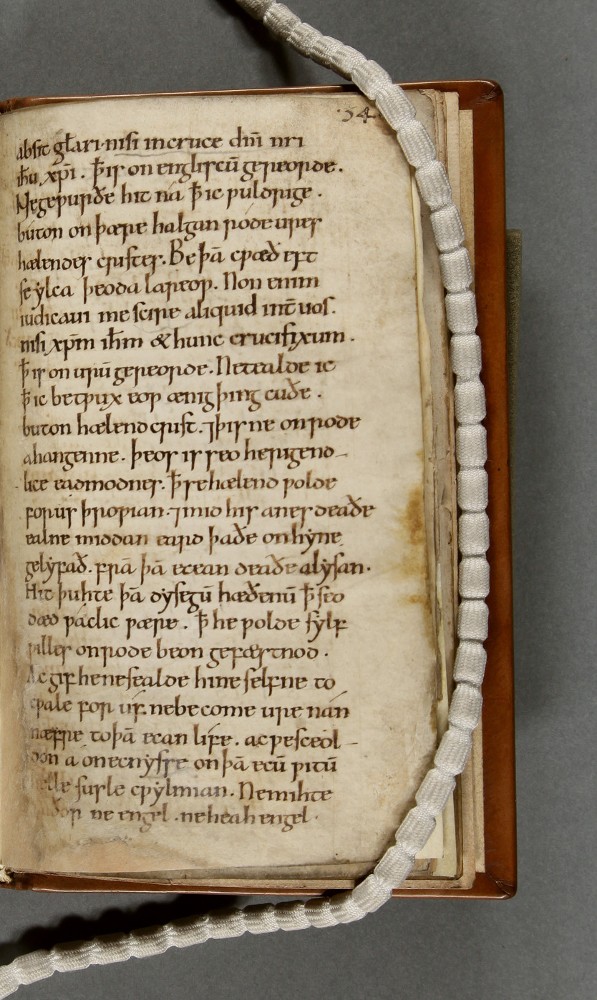 54
absit gl̄ari· nisi in cruce dñi nr̄i
ih̄u. xp̄i. ꝥ is on englisscū gereorde.
Ne gepurðe hit ná ꝥ ic puldrige.
buton on þære halgan rode ures
hælendes cristes. Be þā cpæð eft
se ylca þeoda lareop. Non enim
iudicaui me scire aliquid int̄ uos.
nisi xp̄m ih̄m & hunc crucifixum.
ꝥ is on urū gereorde. Ne tealde ic
ꝥ ic betpux eop ænig þing cuðe.
buton hælend crist. ⁊ þisne on rode
ahangenne. þeos is seo herigend-
lice eadmodnes. ꝥ se hælend polde
for us þropian. ⁊ mid his anes deaðe
ealne middan eard þa ðe on hyne
gelyfað. frā þā ecean deaðe alysan.
Hit þuhte þā dysegū hæðenū ꝥ seo
dæd páclic pære. ꝥ he polde sylf
pilles on rode beon gefæstnod.
Ac gif he ne sealde hine selfne to
cpale for us. ne become ure nán
næfre to þā ecan life. ac pe sceol-
don a on ecnysse on þā ecū pitū
helle susle cpylmian. Ne mihte
ne engel. ne heah engel.